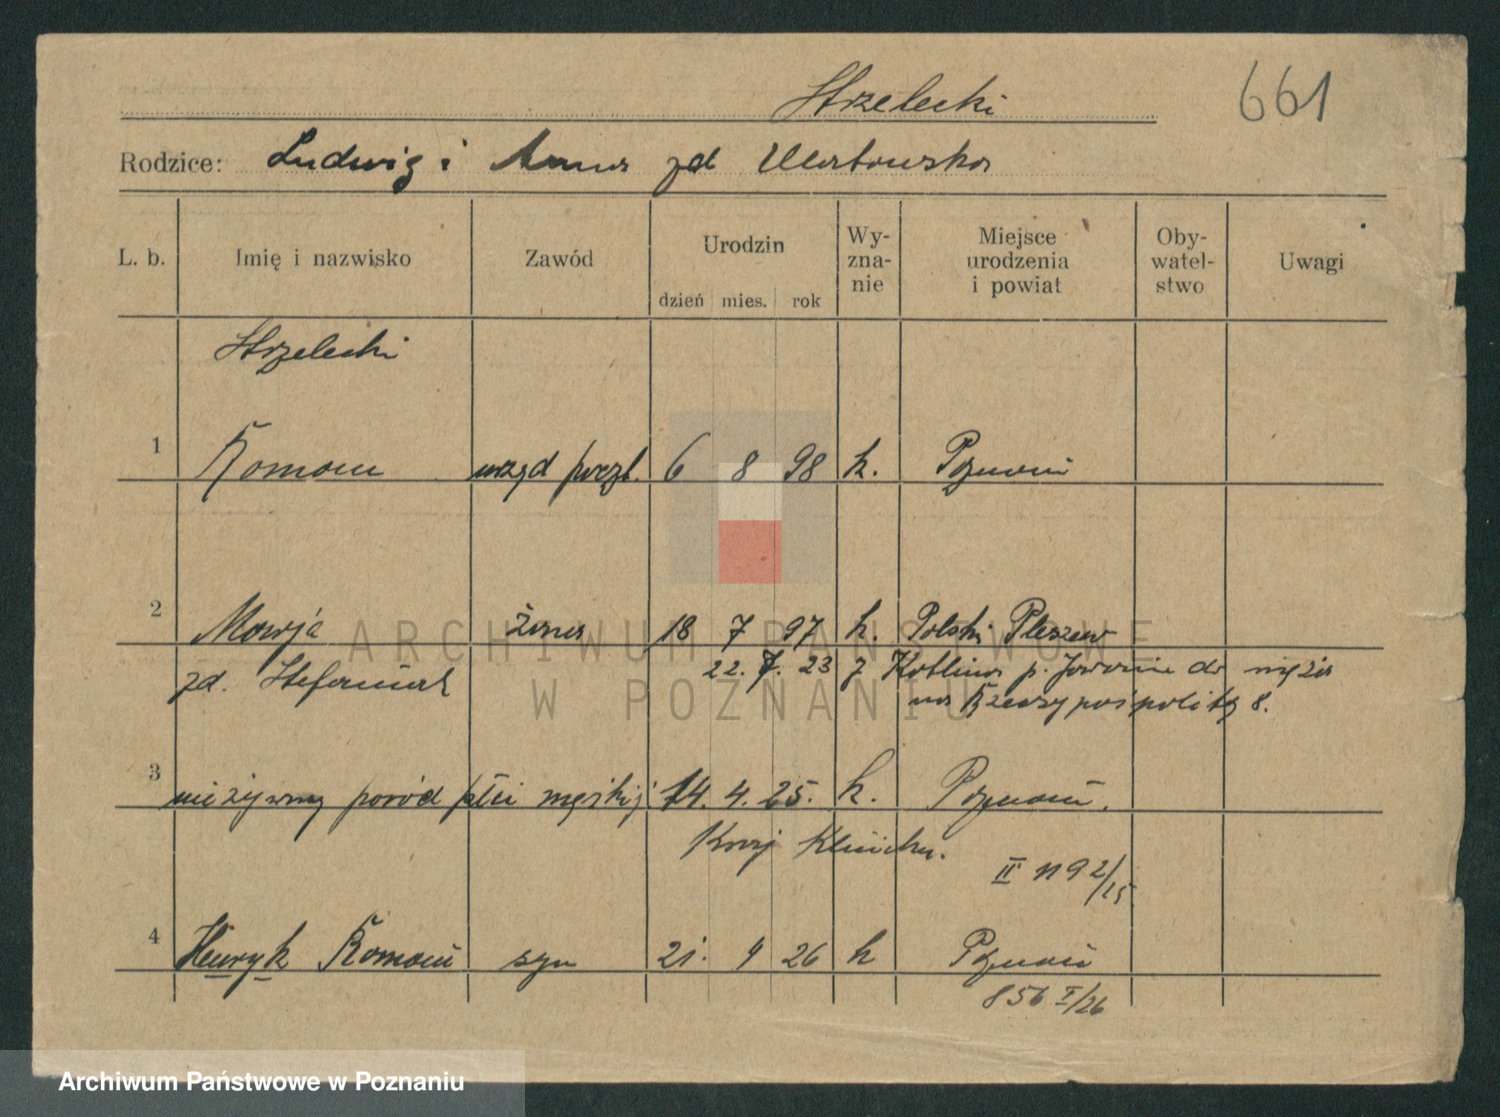 Strzelecki
661
Rodzice: Ludwig i Anna zd
L. b. Imię i nazwisko Zawód Urodzin Wy- Miejsce Oby- Uwagi
zna- urodzenia watel-
nie i powiat stwo
dzień mies. rok
Strzelecki
1 Roman urzęd poczt. 6 8 98 k. Poznań
2 Marja żona 18 7 97 k. Polski Pleszew
zd. Stefaniak 22. 7. 23 z Kotlina p. Jarocin do męża
na Rzeczypospolitą 8.
3 nieżywny poród płci męskij 14. 4. 25. k. Poznań.
Kraj Klinika.
II 1192/25
4 Henryk Roman syn 21. 4 26 k Poznań
856 I/26
ARCHIWUM PAŃSTWOWE
W POZNANIU
Archiwum Państwowe w Poznaniu